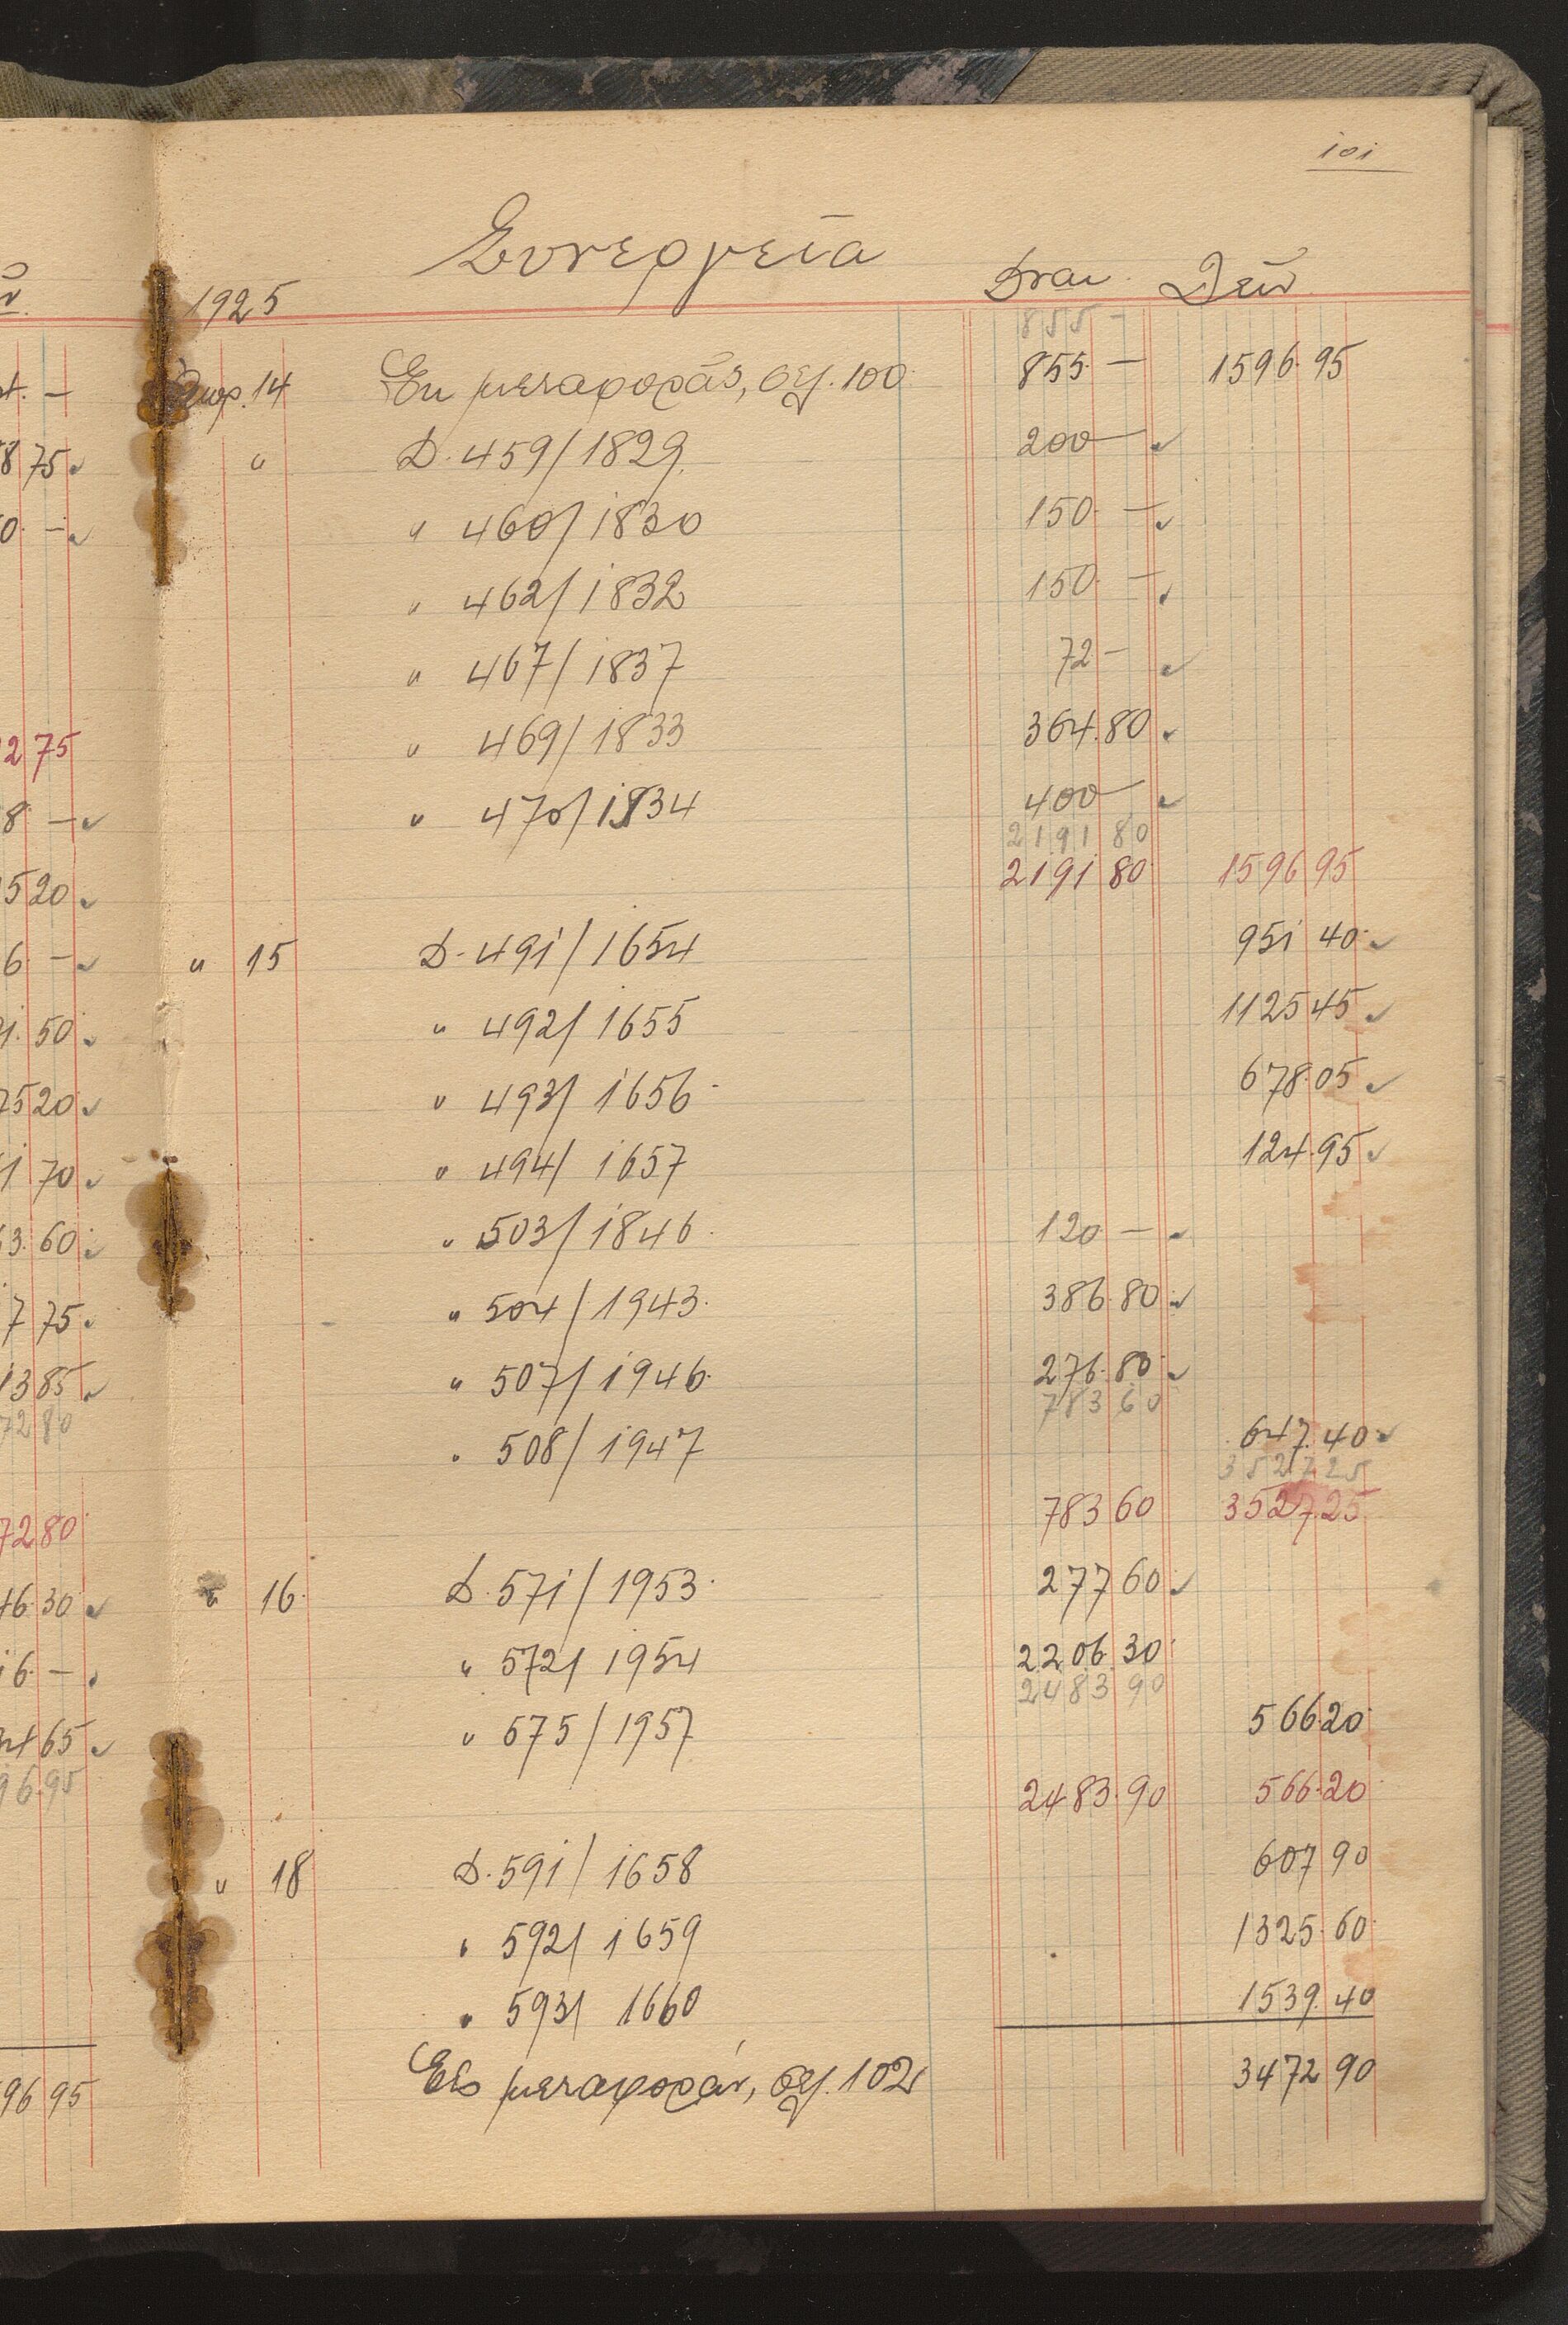 101
Συνεργεία
1925
855 –
14 Εκ μεταφοράς, σελ. 100 855 – 1596.95
" Δ. 459/1829 200 –
" 460/1830 150 –
" 462/1832 150 –
" 467/1837 72 –
" 469/1833 364.80
" 470/1834 400 –
2191 80
2191 80 1596 95
" 15 Δ. 491/1654 951 40
" 492/1655 1125 45
" 493/1656 678.05
" 494/1657 124.95
" 503/1846 120 –
" 504/1943 386.80
" 507/1946 276.80
783 60
" 508/1947 647.40
3527 25
783 60 3527.25
" 16 Δ. 571/1953 277 60
" 572/1954 2206 30
2483 90
" 575/1957 566.20
2483.90 566.20
" 18 Δ. 591/1658 607 90
" 592/1659 1325.60
" 593/1660 1539.40
Εις μεταφοράν, σελ. 102 3472 90